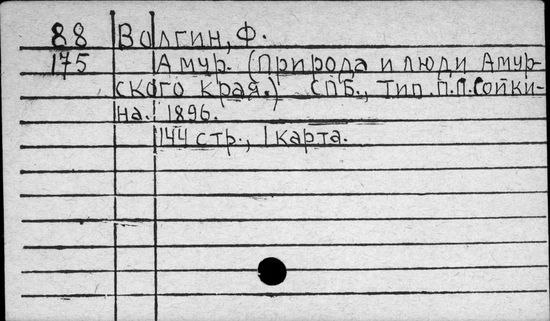 88 Волгин, Ф.
175 Амур. (Природа и люди Амур-
ского края.) СПБ., тип. П.П. Сойки-
на. 1896.
144 стр., 1 карта.